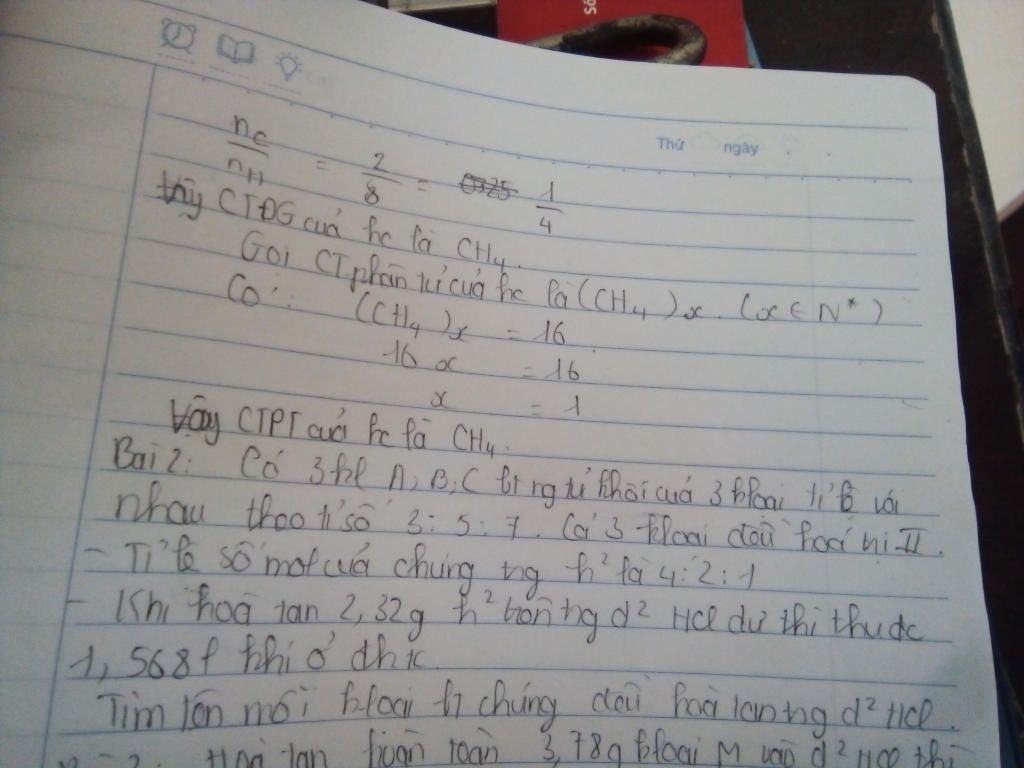 Số
Thứ ngày
nC/nH = 2/8 = 1/4
Vậy CTĐG của hc là CH4.
Gọi CT phân tử của hc là (CH4)x. (x ∈ N*)
Có: (CH4)x = 16
16 x = 16
x = 1
Vậy CTPT của hc là CH4.
Bài 2: Có 3 kl A, B, C bt ng tử khối của 3 kloại tỉ lệ với
nhau theo tỉ số 3 : 5 : 7. Cả 3 kloại đều hoá trị II.
- Tỉ lệ số mol của chúng ng h² là 4 : 2 : 1
- Khi hoà tan 2,32g h² trên ng d² HCl dư thì thu đc
1,568l khí ở đktc.
Tìm tên mỗi kloại bt chúng đều hoà tan ng d² HCl.
hoàn toàn 3,78g kloại M vào d² HCl thì